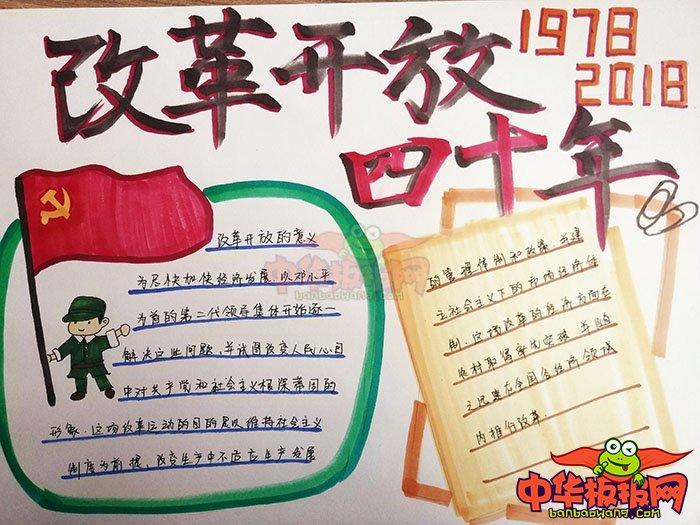 改革开放
1978
2018
四十年
改革开放的意义
为尽快加快经济发展,以邓小平
为首的第二代领导集体开始逐一
解决这些问题,并试图改变人民心目
中对关于党和社会主义根深蒂固的
形象。这场改革运动的目的是以维持社会主义
制度为前提,改变生产中不适应生产发展
的管理体制和政策,并建
立社会主义下的市场经济体
制。这场改革的经济方面在
农村取得率先突破,并随
之迅速在全国各经济领域
内推行改革。
中华板报网
banbaowang.com
中华板报网
banbaowang.com